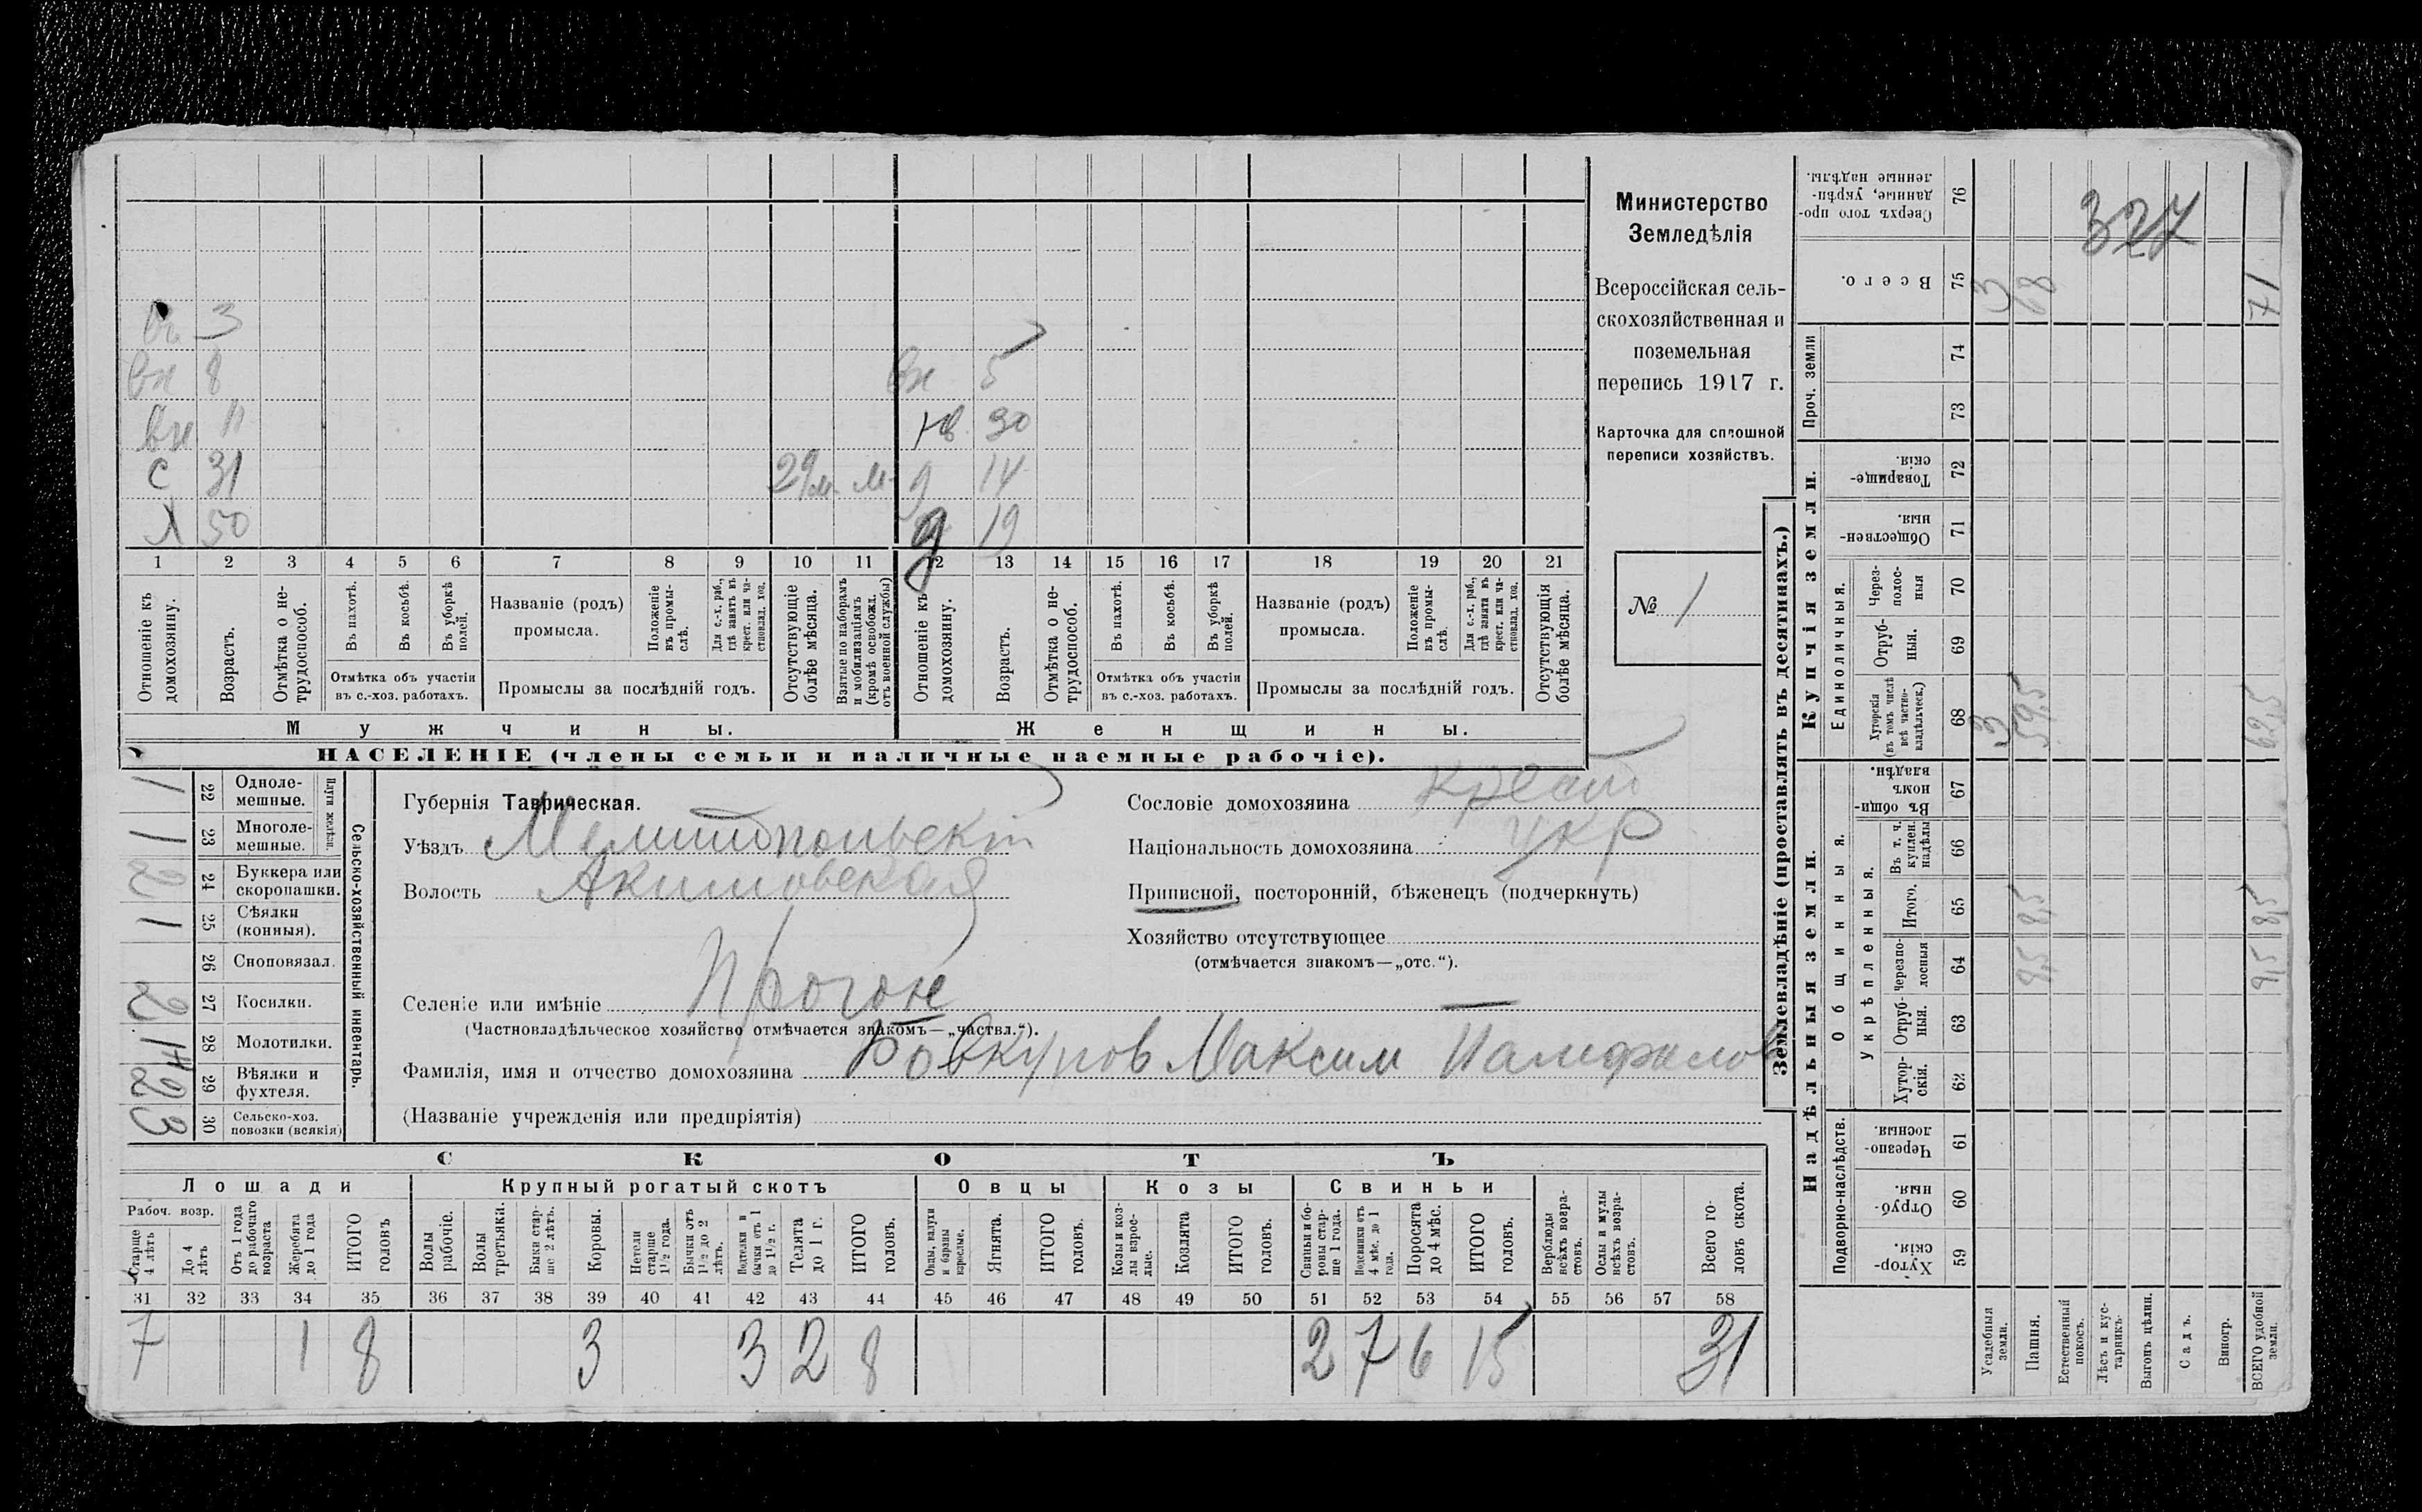 Министерство
Земледѣлія
Всероссійская сель-
скохозяйственная и
поземельная
перепись 1917 г.
Карточка для сплошной
переписи хозяйствъ.
№ 1
327
3
вн 8
вн 5
вн 11
нв. 30
С 31
29 м. м.
д 14
Х 50
д 19
1 2 3 4 5 6 7 8 9 10 11 12 13 14 15 16 17 18 19 20 21
Отношеніе къ домохозяину.
Возрастъ.
Отмѣтка о не-трудоспособ.
Въ пахотѣ.
Въ косьбѣ.
Въ уборкѣ полей.
Отмѣтка объ участіи въ с.-хоз. работахъ.
Названіе (родъ) промысла.
Положеніе въ промы-слѣ.
Для с.-х. раб., гдѣ занятъ въ крест. или ча-стновлад. хоз.
Промыслы за послѣдній годъ.
Отсутствующіе болѣе мѣсяца.
Взятые по наборамъ и мобилизаціямъ (кромѣ освобожд. отъ военной службы)
Отношеніе къ домохозяину.
Возрастъ.
Отмѣтка о не-трудоспособ.
Въ пахотѣ.
Въ косьбѣ.
Въ уборкѣ полей.
Отмѣтка объ участіи въ с.-хоз. работахъ.
Названіе (родъ) промысла.
Положеніе въ промы-слѣ.
Для с.-х. раб., гдѣ занята въ крест. или ча-стновлад. хоз.
Промыслы за послѣдній годъ.
Отсутствующія болѣе мѣсяца.
Мужчины.
Женщины.
НАСЕЛЕНІЕ (члены семьи и наличные наемные рабочіе).
Губернія Таврическая.
Уѣздъ Мелитопольскій
Волость Акимовская
Селеніе или имѣніе Прогон
(Частновладѣльческое хозяйство отмѣчается знакомъ—„частвл.“).
Фамилія, имя и отчество домохозяина Бовкунов Максим Памфилов
(Названіе учрежденія или предпріятія)
Сословіе домохозяина крест
Національность домохозяина укр
Приписной, посторонній, бѣженецъ (подчеркнуть)
Хозяйство отсутствующее
(отмѣчается знакомъ—„отс.“).
Сельско-хозяйственный инвентарь.
Плуги желѣзн.
22 Одноле-мешные. 1
23 Многоле-мешные. 1
24 Буккера или скоропашки. 2
25 Сѣялки (конныя). 1
26 Сноповязал.
27 Косилки. 2
28 Молотилки.
29 Вѣялки и фухтеля.
30 Сельско-хоз. повозки (всякія) 3
СКОТЪ
Лошади
Крупный рогатый скотъ
Овцы
Козы
Свиньи
Рабоч. возр.
Старше 4 лѣтъ
До 4 лѣтъ
Отъ 1 года до рабочаго возраста
Жеребята до 1 года
ИТОГО головъ
Волы рабочіе.
Волы третьяки.
Быки стар-ше 2 лѣтъ.
Коровы.
Нетели старше 1½ года.
Бычки отъ 1½ до 2 лѣтъ.
Подтелки и бычки отъ 1 до 1½ г.
Телята до 1 г.
ИТОГО головъ.
Овцы, валухи и бараны взрослые.
Ягнята.
ИТОГО головъ.
Козы и коз-лы взрос-лые.
Козлята
ИТОГО головъ.
Свиньи и бо-ровы стар-ше 1 года.
Подсвинки отъ 4 мѣс. до 1 года.
Поросята до 4 мѣс.
ИТОГО головъ.
Верблюды всѣхъ возра-стовъ.
Ослы и мулы всѣхъ возра-стовъ.
Всего го-ловъ скота.
31 32 33 34 35 36 37 38 39 40 41 42 43 44 45 46 47 48 49 50 51 52 53 54 55 56 57 58
7 1 8 3 3 2 8 2 7 6 15 31
Землевладѣніе (проставлять въ десятинахъ.)
Надѣльныя земли.
Купчія земли.
Проч. земли
Подворно-наслѣдств.
Общинныя.
Укрѣпленныя.
Единоличныя.
Сверхъ того про-данные, укрѣп-ленные надѣлы. 76
Всего. 75 3 68 71
74
73
Товарище-скія. 72
Обществен-ныя. 71
Через-полос-ныя 70
Отруб-ныя. 69
Хуторскія (въ томъ числѣ всѣ частно-владѣльческ.) 68 3 59,5 62,5
Въ общи-номъ владѣн. 67
Въ т. ч. куплен. надѣлы 66
Итого. 65 8,5 8,5
черезпо-лосныя 64
Отруб-ныя. 63
Хутор-скія. 62
Черезпо-лосныя. 61
Отруб-ныя. 60
Хутор-скія. 59
Усадебныя земли.
Пашня.
Естественный покосъ.
Лѣсъ и кус-тарникъ.
Выгонъ цѣлин.
Садъ.
Виногр.
ВСЕГО удобной земли.